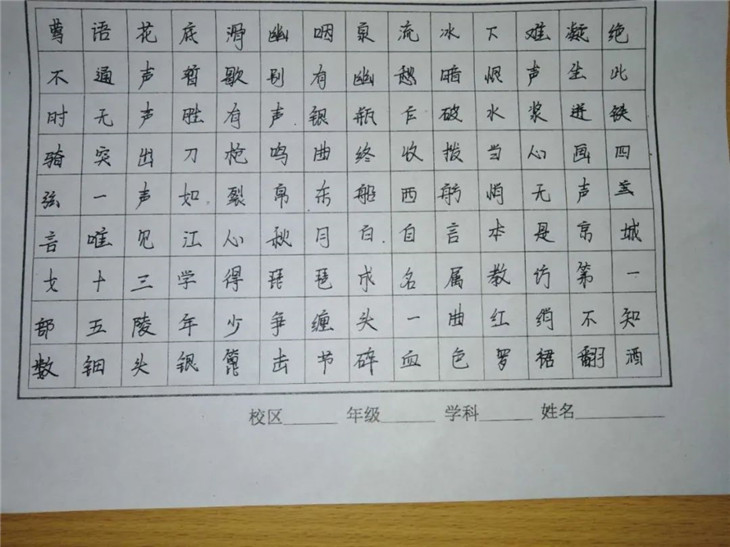 莺语花底滑幽咽泉流冰下难凝绝
不通声暂歇别有幽愁暗恨声生此
时无声胜有声银瓶乍破水浆迸铁
骑突出刀枪鸣曲终收拨当心画四
弦一声如裂帛东船西舫悄无声
言唯见江心秋月白自言本是京城
女十三学得琵琶成名属教坊第一
部五陵年少争缠头一曲红绡不知
数钿头银篦击节碎血色罗裙翻酒
校区______ 年级______ 学科______ 姓名__________